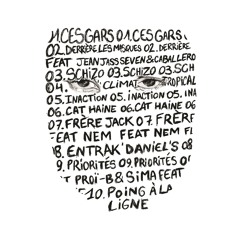 1.CES GARS 01.CES GARS
02.DERRIÈRE LES MASQUES 02.DERRIÈRE
FEAT JEAN JASS SEVEN & CABALLERO
03.SCHIZO 03.SCHIZO 03.SCH
04. CLIMAT TROPICAL
05.INACTION 05.INACTION 05.INA
06.CAT HAINE 06.CAT HAINE 06
07.FRÈRE JACK 07.FRÈRE
EAT NEM FEAT NEM F
8.ENTRAK'DANIEL'S 08
9.PRIORITÉS 09.PRIORITÉS 0
T PROÏ-B & SIMA FEAT
10.POING À LA
LIGNE